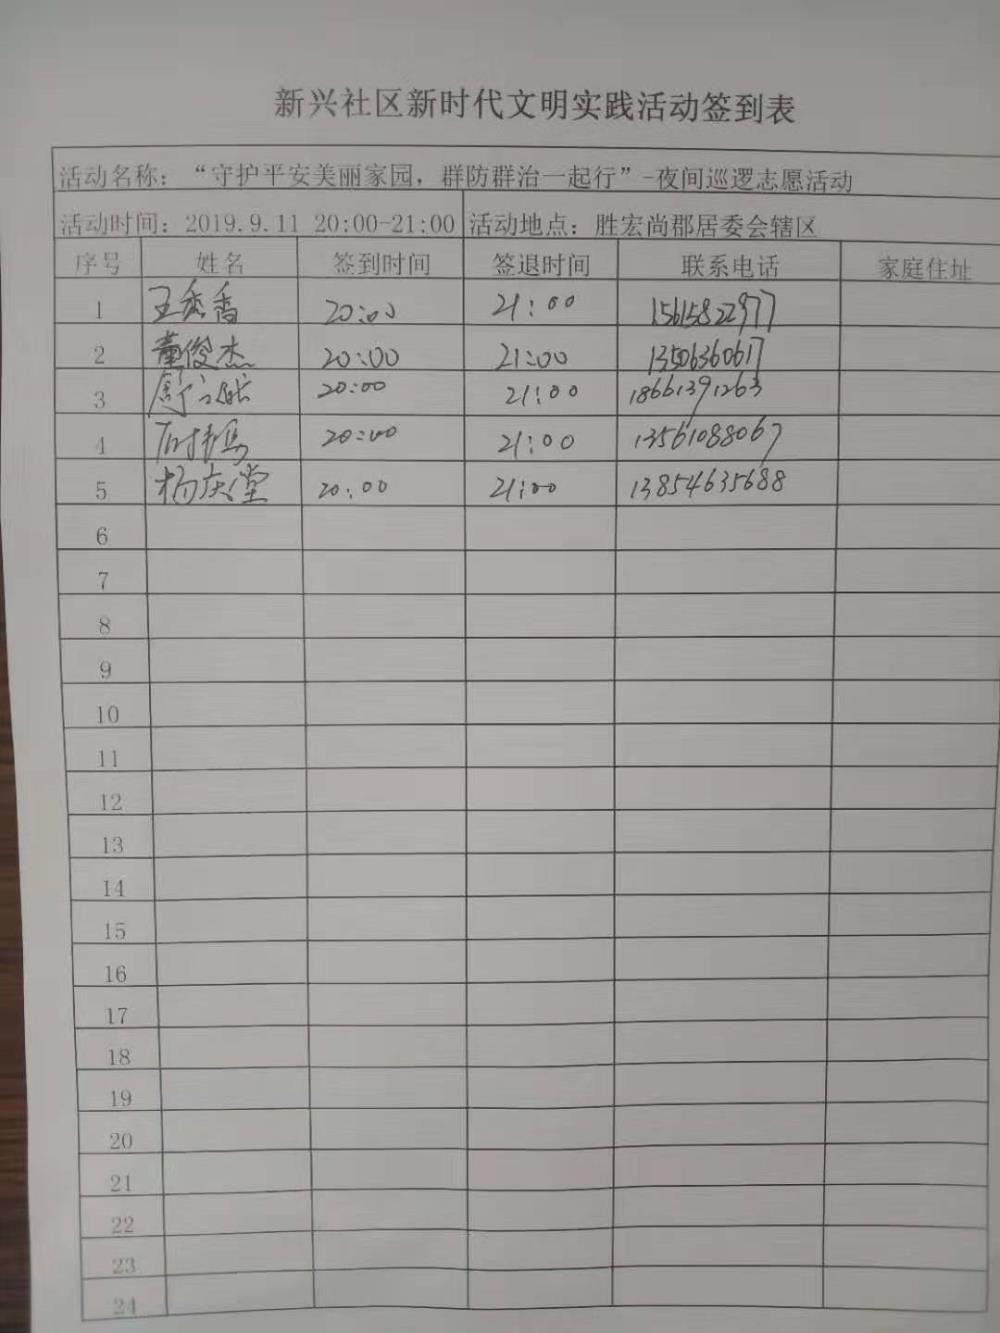 新兴社区新时代文明实践活动签到表
活动名称：“守护平安美丽家园，群防群治一起行”-夜间巡逻志愿活动
活动时间：2019.9.11 20:00-21:00 活动地点：胜宏尚郡居委会辖区
序号 姓名 签到时间 签退时间 联系电话 家庭住址
1 王秀香 20:00 21:00 15615822977
2 董俊杰 20:00 21:00 13506360617
3 20:00 21:00 18661391263
4 20:00 21:00 13561088067
5 杨庆堂 20:00 21:00 13854635688
6
7
8
9
10
11
12
13
14
15
16
17
18
19
20
21
22
23
24